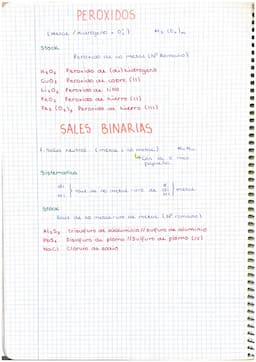 PEROXIDOS
(metal / hidrogeno + O₂²⁻) M₂ (O₂)ₘ
Stock
Peróxido de no metal (Nº Romano)
H₂O₂ Peroxido de (di) hidrogeno
CuO₂ Peroxido de cobre (II)
Li₂O₂ Peroxido de litio
FeO₂ Peroxido de hierro (II)
Fe₂ (O₂)₃ Peroxido de hierro (III)
SALES BINARIAS
1. Sales neutras. (metal + no metal)
Sistematica
di
de no metal uro de metal
Stock
de no metal+uro de metal (Nº romano)
Al₂S₃ trisulfuro de dialuminio // sulfuro de aluminio
PbS₂ Disulfuro de plomo // Sulfuro de plomo (IV)
NaCl Cloruro de sodio